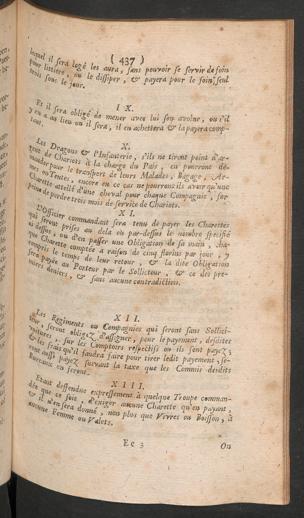 ( 437 )
lequel il sera logé les aura, sans pouvoir se servir de foin
pour littiere, ou le dissiper, & payera pour le foin seul
trois sous le jour.
I X.
Et il sera obligé de mener avec lui son avoine, ou s'il
y en a au lieu où il sera, il en achettera & la payera comp-
tant.
X.
Les Dragons & l'Infanterie, s'ils ne tirent point d'ar-
gent de Chariots à la charge du Païs, en pourront de-
mander pour le transport de leurs Malades, Bagage, Ar-
mes, ou Tentes; encore en ce cas ne pourront-ils avoir qu'une
Charette attellé d'une cheval pour chaque Compagnie, sur
peine de perdre trois mois de service de Chariots.
X I.
L'Officier commandant sera tenu de payer les Charettes
qui seront prises au delà ou par-dessus le nombre specifié
ci dessus, ou d'en passer une Obligation de sa main, cha-
que Charette comptée à raison de cinq florins par jour, y
compris le temps de leur retour, & la dite Obligation
sera payée au Porteur par le Solliciteur, & ce des pre-
miers deniers, & sans aucune contradiction.
X I I.
Les Regiments ou Compagnies qui seront sans Sollici-
teur, seront obligez d'assigner, pour le payement, desdites
voitures, sur les Comptoirs respectifs où ils sont payez;
& les frais qu'il faudra faire pour tirer ledit payement, se-
ront aussi payez suivant la taxe que les Commis desdits
Bureaux en feront.
X I I I.
Etant deffendue expressement à quelque Troupe comman-
dée que ce soit, d'exiger aucune Charette qu'en payant,
& il n'en sera donné, non plus que Vivres ou Boisson, à
aucune Femme ou Valets.
Ee 3 On